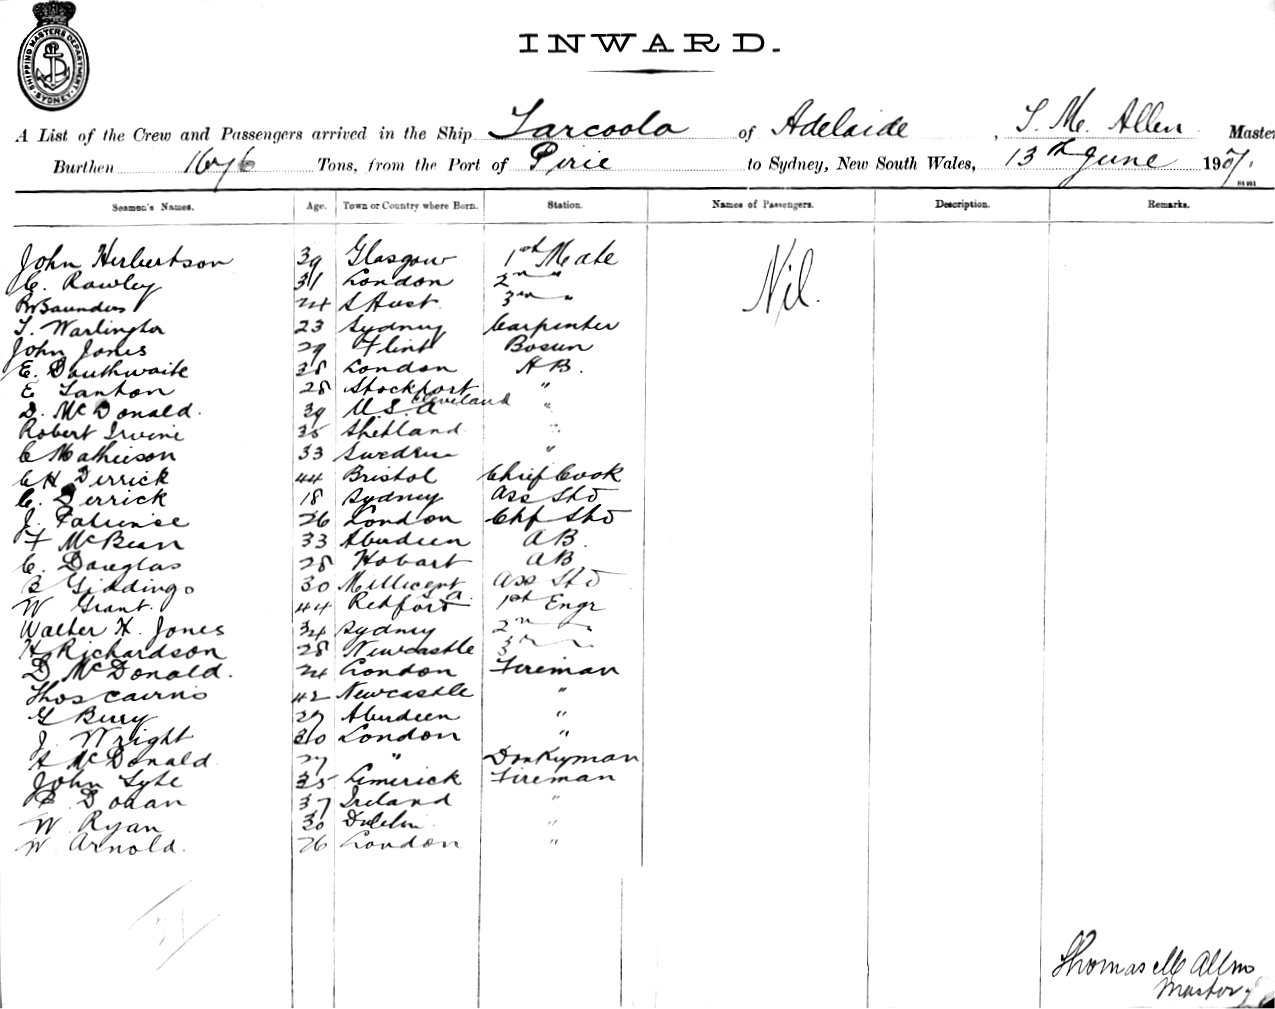 SHIPPING MASTERS DEPARTMENT SYDNEY
INWARD.
A List of the Crew and Passengers arrived in the Ship Tarcoola of Adelaide, T. M. Allen Master
Burthen 1676 Tons, from the Port of Pirie to Sydney, New South Wales, 13th June 1907.
Seamen's Names. Age. Town or Country where Born. Station. Names of Passengers. Description. Remarks.
John Herbertson 39 Glasgow 1st Mate Nil.
C. Rawley 31 London 2nd "
Saunders 24 S Aust 3rd "
T. Warlington 23 Sydney Carpenter
John Jones 29 Flint Bosun
E. Douthwaite 38 London AB.
E Tanton 28 Stockport "
D. McDonald. 39 U.S.A Cleveland "
Robert Irvine 35 Shetland "
C Mathieson 33 Sweden "
C H Derrick 44 Bristol Chief Cook
C. Derrick 18 Sydney Ass Std
J. 26 London Chf Std
F McBean 33 Aberdeen AB.
C. Douglas 28 Hobart AB
B Giddings 30 Millicent S.A. Ass Std
W Grant. 44 Retford 1st Engr
Walter H. Jones 34 Sydney 2nd "
H Richardson 28 Newcastle 3rd "
D McDonald. 24 London Fireman
Thos Cairns 42 Newcastle "
G Berry 27 Aberdeen "
J. Wright 30 London "
A McDonald 27 " Donkyman
John Lyle 35 Limerick Fireman
Doran 37 Ireland "
W. Ryan 30 Dublin "
W. Arnold. 26 London "
Thomas M Allen
Master